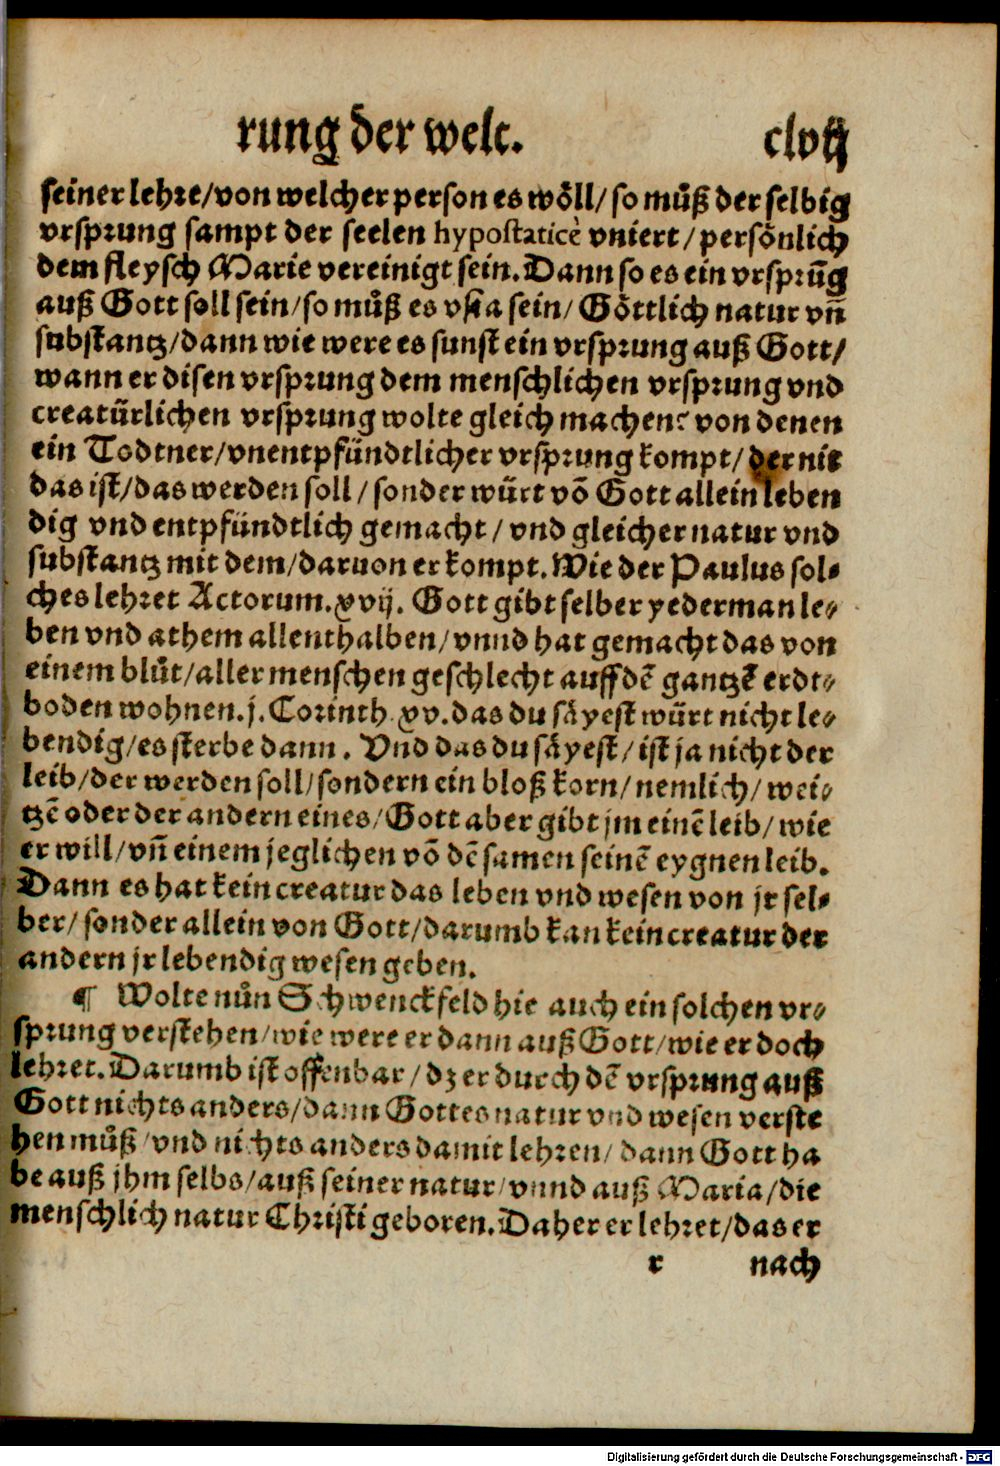 rung der welt. clvij
seiner lehre/von welcher person es wöll/so můß der selbig
vrsprung sampt der seelen hypostaticè vniert/persönlich
dem fleysch Marie vereinigt sein. Dann so es ein vrsprūg
auß Gott soll sein/so můß es vsia sein/Göttlich natur vñ
substantz/dann wie were es sunst ein vrsprung auß Gott/
wann er disen vrsprung dem menschlichen vrsprung vnd
creatürlichen vrsprung wolte gleich machen? von denen
ein Todtner/vnentpfündtlicher vrsprung kompt/der nit
das ist/das werden soll/sonder würt võ Gott allein leben
dig vnd entpfündtlich gemacht/vnd gleicher natur vnd
substantz mit dem/daruon er kompt. Wie der Paulus sol⸗
ches lehret Actorum.xvij. Gott gibt selber yederman le⸗
ben vnd athem allenthalben/vnnd hat gemacht das von
einem blůt/aller menschen geschlecht auff dẽ gantzẽ erdt⸗
boden wohnen.j.Corinth.xv.das du säyest würt nicht le⸗
bendig/es sterbe dann. Vnd das du säyest/ist ja nicht der
leib/der werden soll/sondern ein bloß korn/nemlich/wei⸗
tzẽ oder der andern eines/Gott aber gibt jm einẽ leib/wie
er will/vñ einem jeglichen võ dẽ samen seinẽ eygnen leib.
Dann es hat kein creatur das leben vnd wesen von jr sel⸗
ber/sonder allein von Gott/darumb kan kein creatur der
andern jr lebendig wesen geben.
¶ Wolte nůn Schwenckfeld hie auch ein solchen vr⸗
sprung verstehen/wie were er dann auß Gott/wie er doch
lehret. Darumb ist offenbar/dz er durch dẽ vrsprung auß
Gott nichts anders/dann Gottes natur vnd wesen verste
hen můß/vnd nichts anders damit lehren/dann Gott ha
be auß jhm selbs/auß seiner natur/vnnd auß Maria/die
menschlich natur Christi geboren. Daher er lehret/das er
r nach
Digitalisierung gefördert durch die Deutsche Forschungsgemeinschaft - DFG